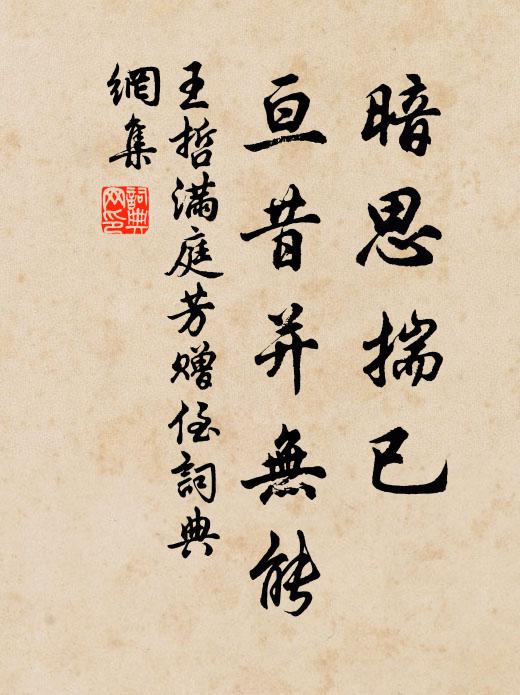 暗思揣已
亘昔并無能
王哲满庭芳赠侄詞典
網集
詞典
网印